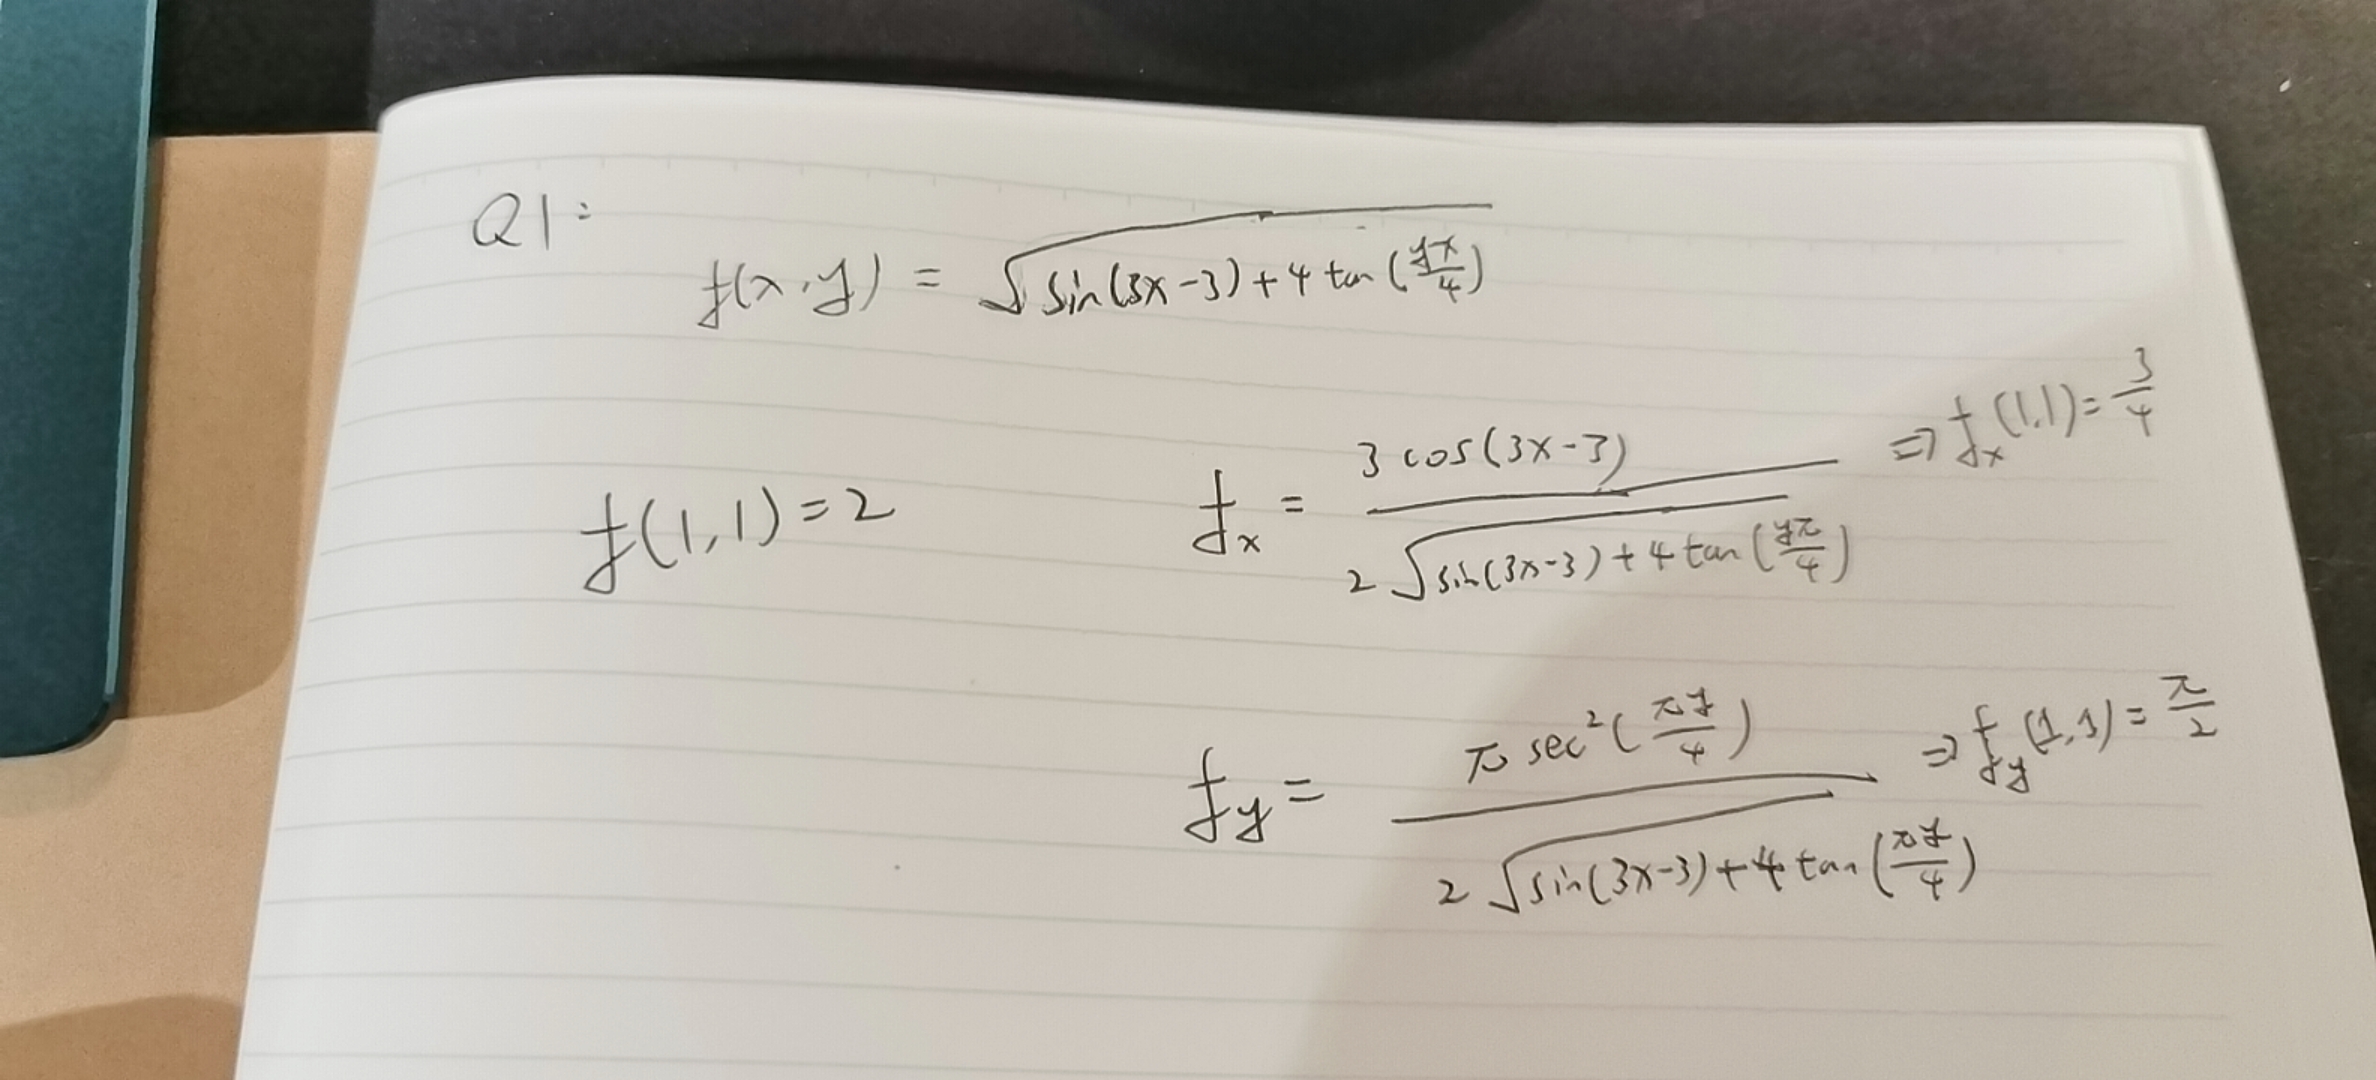 Q1:
f(x,y) = √(sin(3x-3)+4 tan(yπ/4))
f(1,1)=2
f_x = 3 cos(3x-3) / 2√(sin(3x-3)+4 tan(yπ/4)) ⇒ f_x(1,1)=3/4
f_y = π sec²(πy/4) / 2√(sin(3x-3)+4 tan(πy/4)) ⇒ f_y(1,1)=π/2